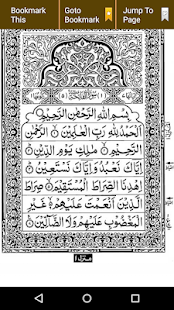 Bookmark This
Goto Bookmark
Jump To Page
بِسْمِ اللّٰهِ الرَّحْمٰنِ الرَّحِيْمِ
اَلْحَمْدُ لِلّٰهِ رَبِّ الْعٰلَمِيْنَ الرَّحْمٰنِ
الرَّحِيْمِ مٰلِكِ يَوْمِ الدِّيْنِ
اِيَّاكَ نَعْبُدُ وَاِيَّاكَ نَسْتَعِيْنُ
اِهْدِنَا الصِّرَاطَ الْمُسْتَقِيْمَ صِرَاطَ
الَّذِيْنَ اَنْعَمْتَ عَلَيْهِمْ غَيْرِ
الْمَغْضُوْبِ عَلَيْهِمْ وَلَا الضَّآلِّيْنَ
منزل ١